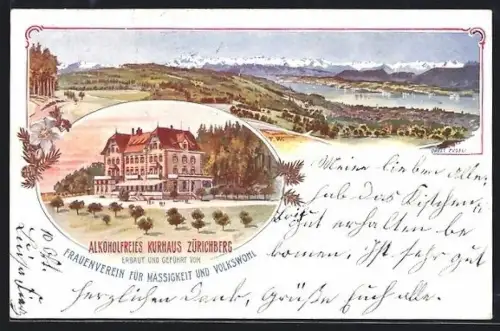 ALKOHOLFREIES KURHAUS ZÜRICHBERG
ERBAUT UND GEFÜHRT VON
FRAUENVEREIN FÜR MÄSSIGKEIT UND VOLKSWOHL
Meine lieben Alle.
hab das Kistchen
gut erhalten be
kommen. Ist sehr gut
herzlichen Dank, Grüße Euch alle.